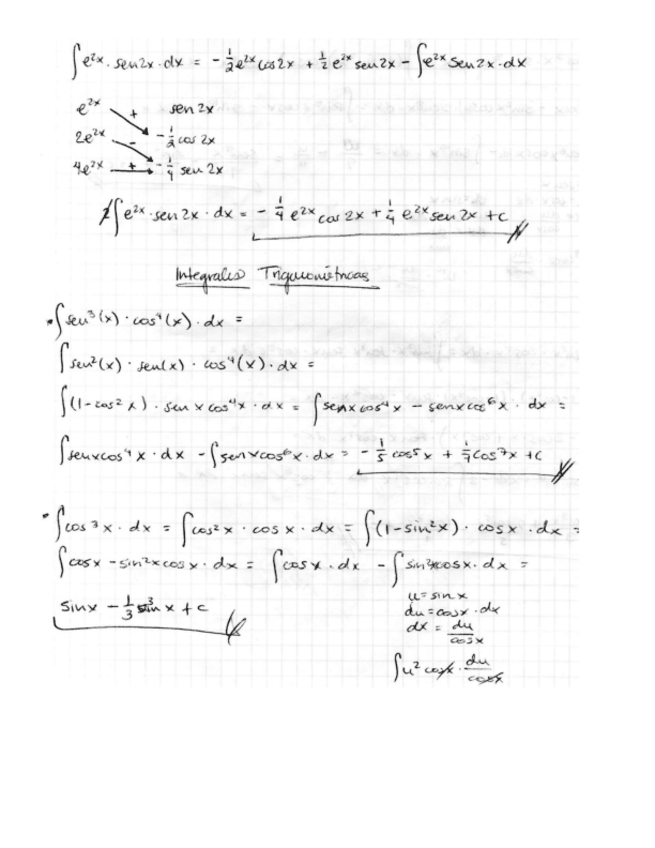 ∫e^2x . sen2x · dx = - 1/2 e^2x cos2x + 1/2 e^2x sen 2x - ∫e^2x Sen 2x · dx
e^2x + sen 2x
2e^2x - - 1/2 cos 2x
4e^2x + - 1/4 sen 2x
2∫e^2x · sen 2x · dx = - 1/4 e^2x cos 2x + 1/4 e^2x sen 2x + c
Integrales Trigonométricas
• ∫sen^3(x) · cos^4(x) · dx =
∫sen^2(x) · sen(x) · cos^4(x) · dx =
∫(1-cos^2 x) · sen x cos^4x · dx = ∫senxcos^4x - senxcos^6x · dx =
∫senxcos^4x · dx - ∫senxcos^6x · dx = - 1/5 cos^5x + 1/7 cos^7x + c
• ∫cos^3x · dx = ∫cos^2x · cos x · dx = ∫(1-sin^2x) · cosx · dx =
∫cosx - sin^2xcosx · dx = ∫cosx · dx - ∫sin^2xcosx · dx =
sinx - 1/3 sin^3x + c
u = sin x
du = cosx · dx
dx = du/cosx
∫u^2 cosx · du/cosx